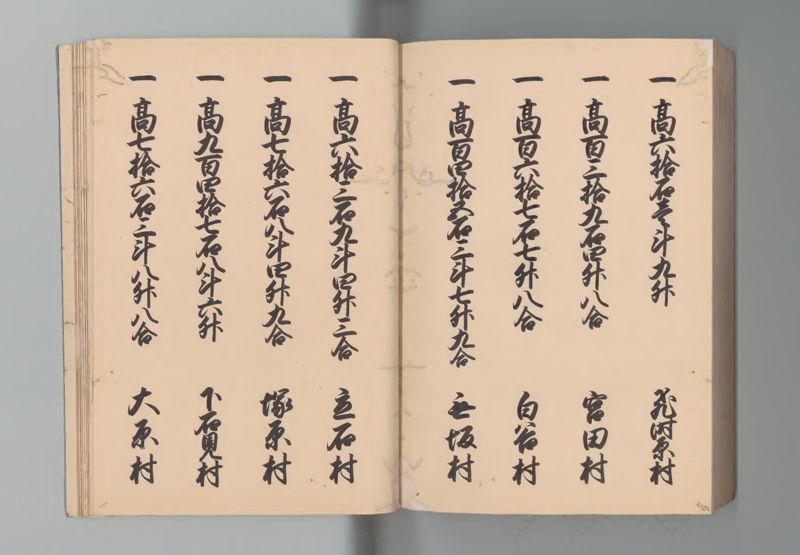 一 髙六拾石壱斗九升 原村
一 髙百三拾九石四升八合 宮田村
一 髙百六拾七石七升八合 白谷村
一 髙百四拾石三斗七升九合 坂村
一 髙六拾三石九斗四升三合 立石村
一 髙七拾六石八斗四升九合 塚原村
一 髙九百四拾七石八斗六升 下石見村
一 髙七拾六石三斗八升八合 大原村